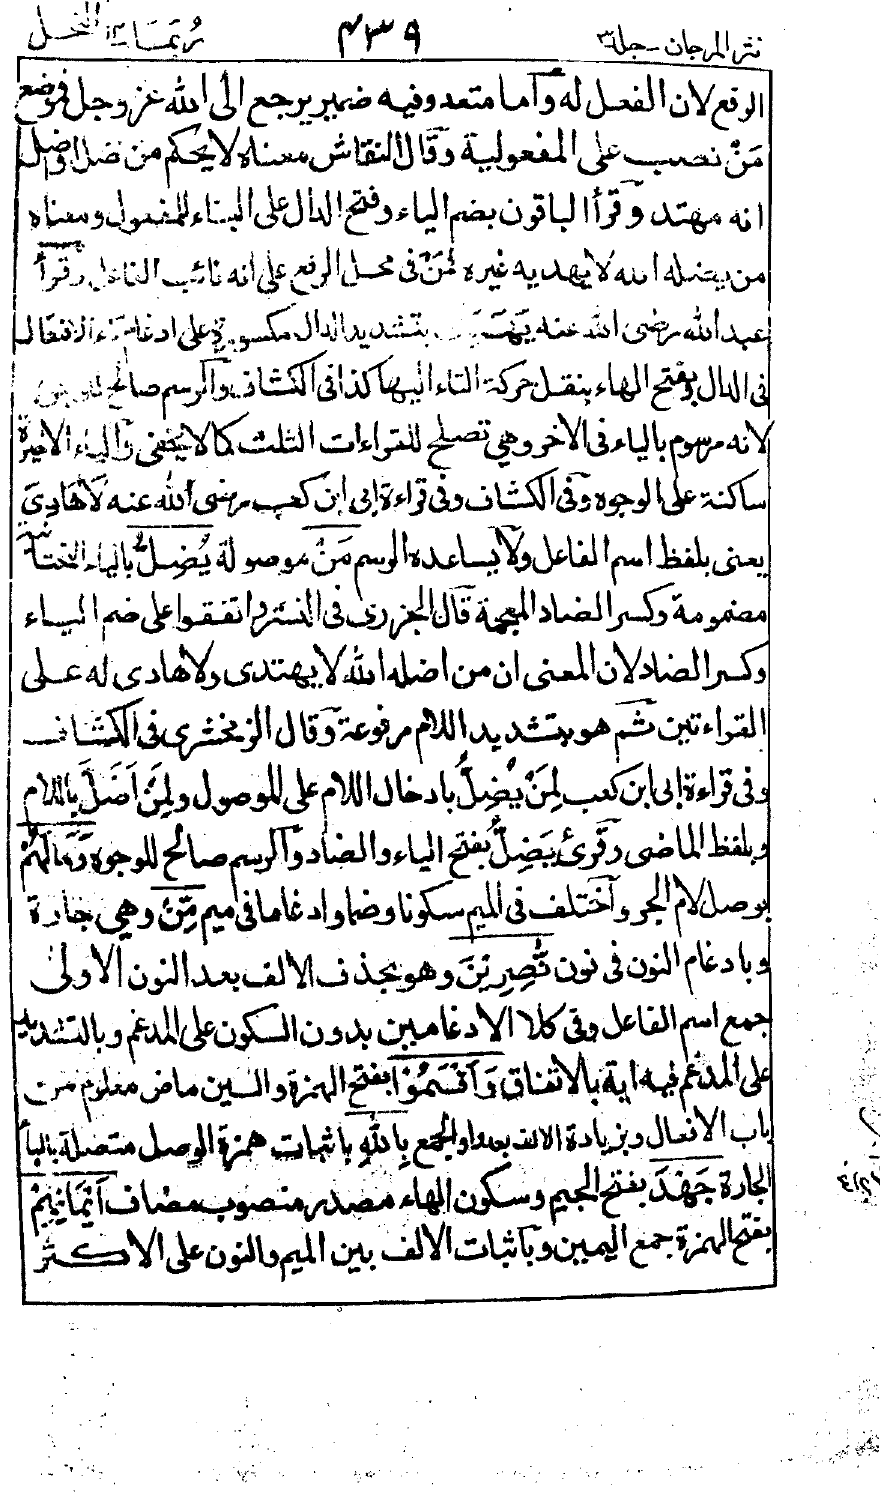 نثر المرجان - جلد ٣ ٤٣٩ رُبَمَا ١٤ النحل
الرفع لان الفعل له وَآما متعد وفيه ضمير يرجع الى الله عز وجل فموضع
مَنْ نصب على المفعولية وَقال النقاش معناه لا يحكم من ضل او ضل
انه مهتد وَقرأ الباقون بضم الياء وفتح الدال على البناء للمفعول ومعناه
من يضلله الله لا يهديه غيره فمَنْ فى محل الرفع على انه نائب الفاعل وقرأ
عبد الله رضى الله عنه بتشديد الدال مكسورة على ادغام تاء الافتعال
فى الدال وبفتح الهاء بنقل حركة التاء اليها كذا فى الكشاف وَالرسم صالح للوجوه
لانه مرسوم بالياء فى الآخر وهي تصلح للقراءات الثلث كما لا يخفى وَالياء الاخيرة
ساكنة على الوجوه وَفى الكشاف وفى قراءة ابى ابن كعب رضى الله عنه لَا هَادِيَ
يعنى بلفظ اسم الفاعل ولَا يساعده الرسم مَنْ موصولة يُضِلُّ بالياء التحتانية
مضمومة وكسر الضاد المعجمة قَال الجزرى فى النشر واتفقوا على ضم اليـاء
وكسر الضاد لان المعنى ان من اضله الله لا يهتدى ولا هادى له عـلى
القراءتين ثَم هو بتشديد اللام مرفوعة وَقال الزمخشرى فى الكشاف
وفى قراءة ابى ابن كعب لِمَنْ يُضِلُّ بادخال اللام على الموصول ولِمَنْ اَضَلَّ باللام
وبلفظ الماضى وَقرئ يَضِلُّ بفتح الياء والضاد وَالرسم صالح للوجوه وَمَا لَهُمْ
بوصل لام الجر وَاختلف فى الميم سكونا وضما وادغاما فى ميم مِّنْ وهى جارة
وبادغام النون فى نون نّٰصِرِينَ وهو بحذف الالف بعد النون الاولىٰ
جمع اسم الفاعل وفى كلا الادغامين بدون السكون على المدغم وبالتشديد
على المدغم فيه اية بالاتفاق وَاَقْسَمُوْا بفتح الهمزة والسين ماض معلوم من
باب الافعال وبزيادة الالف بعد واو الجمع بِاللّٰهِ باثبات همزة الوصل متصلة بالباء
الجارة جَهْدَ بفتح الجيم وسكون الهاء مصدر منصوب مضاف اَيْمَانِهِمْ
بفتح الهمزة جمع اليمين وَبآثبات الالف بين الميم والنون على الاكثر